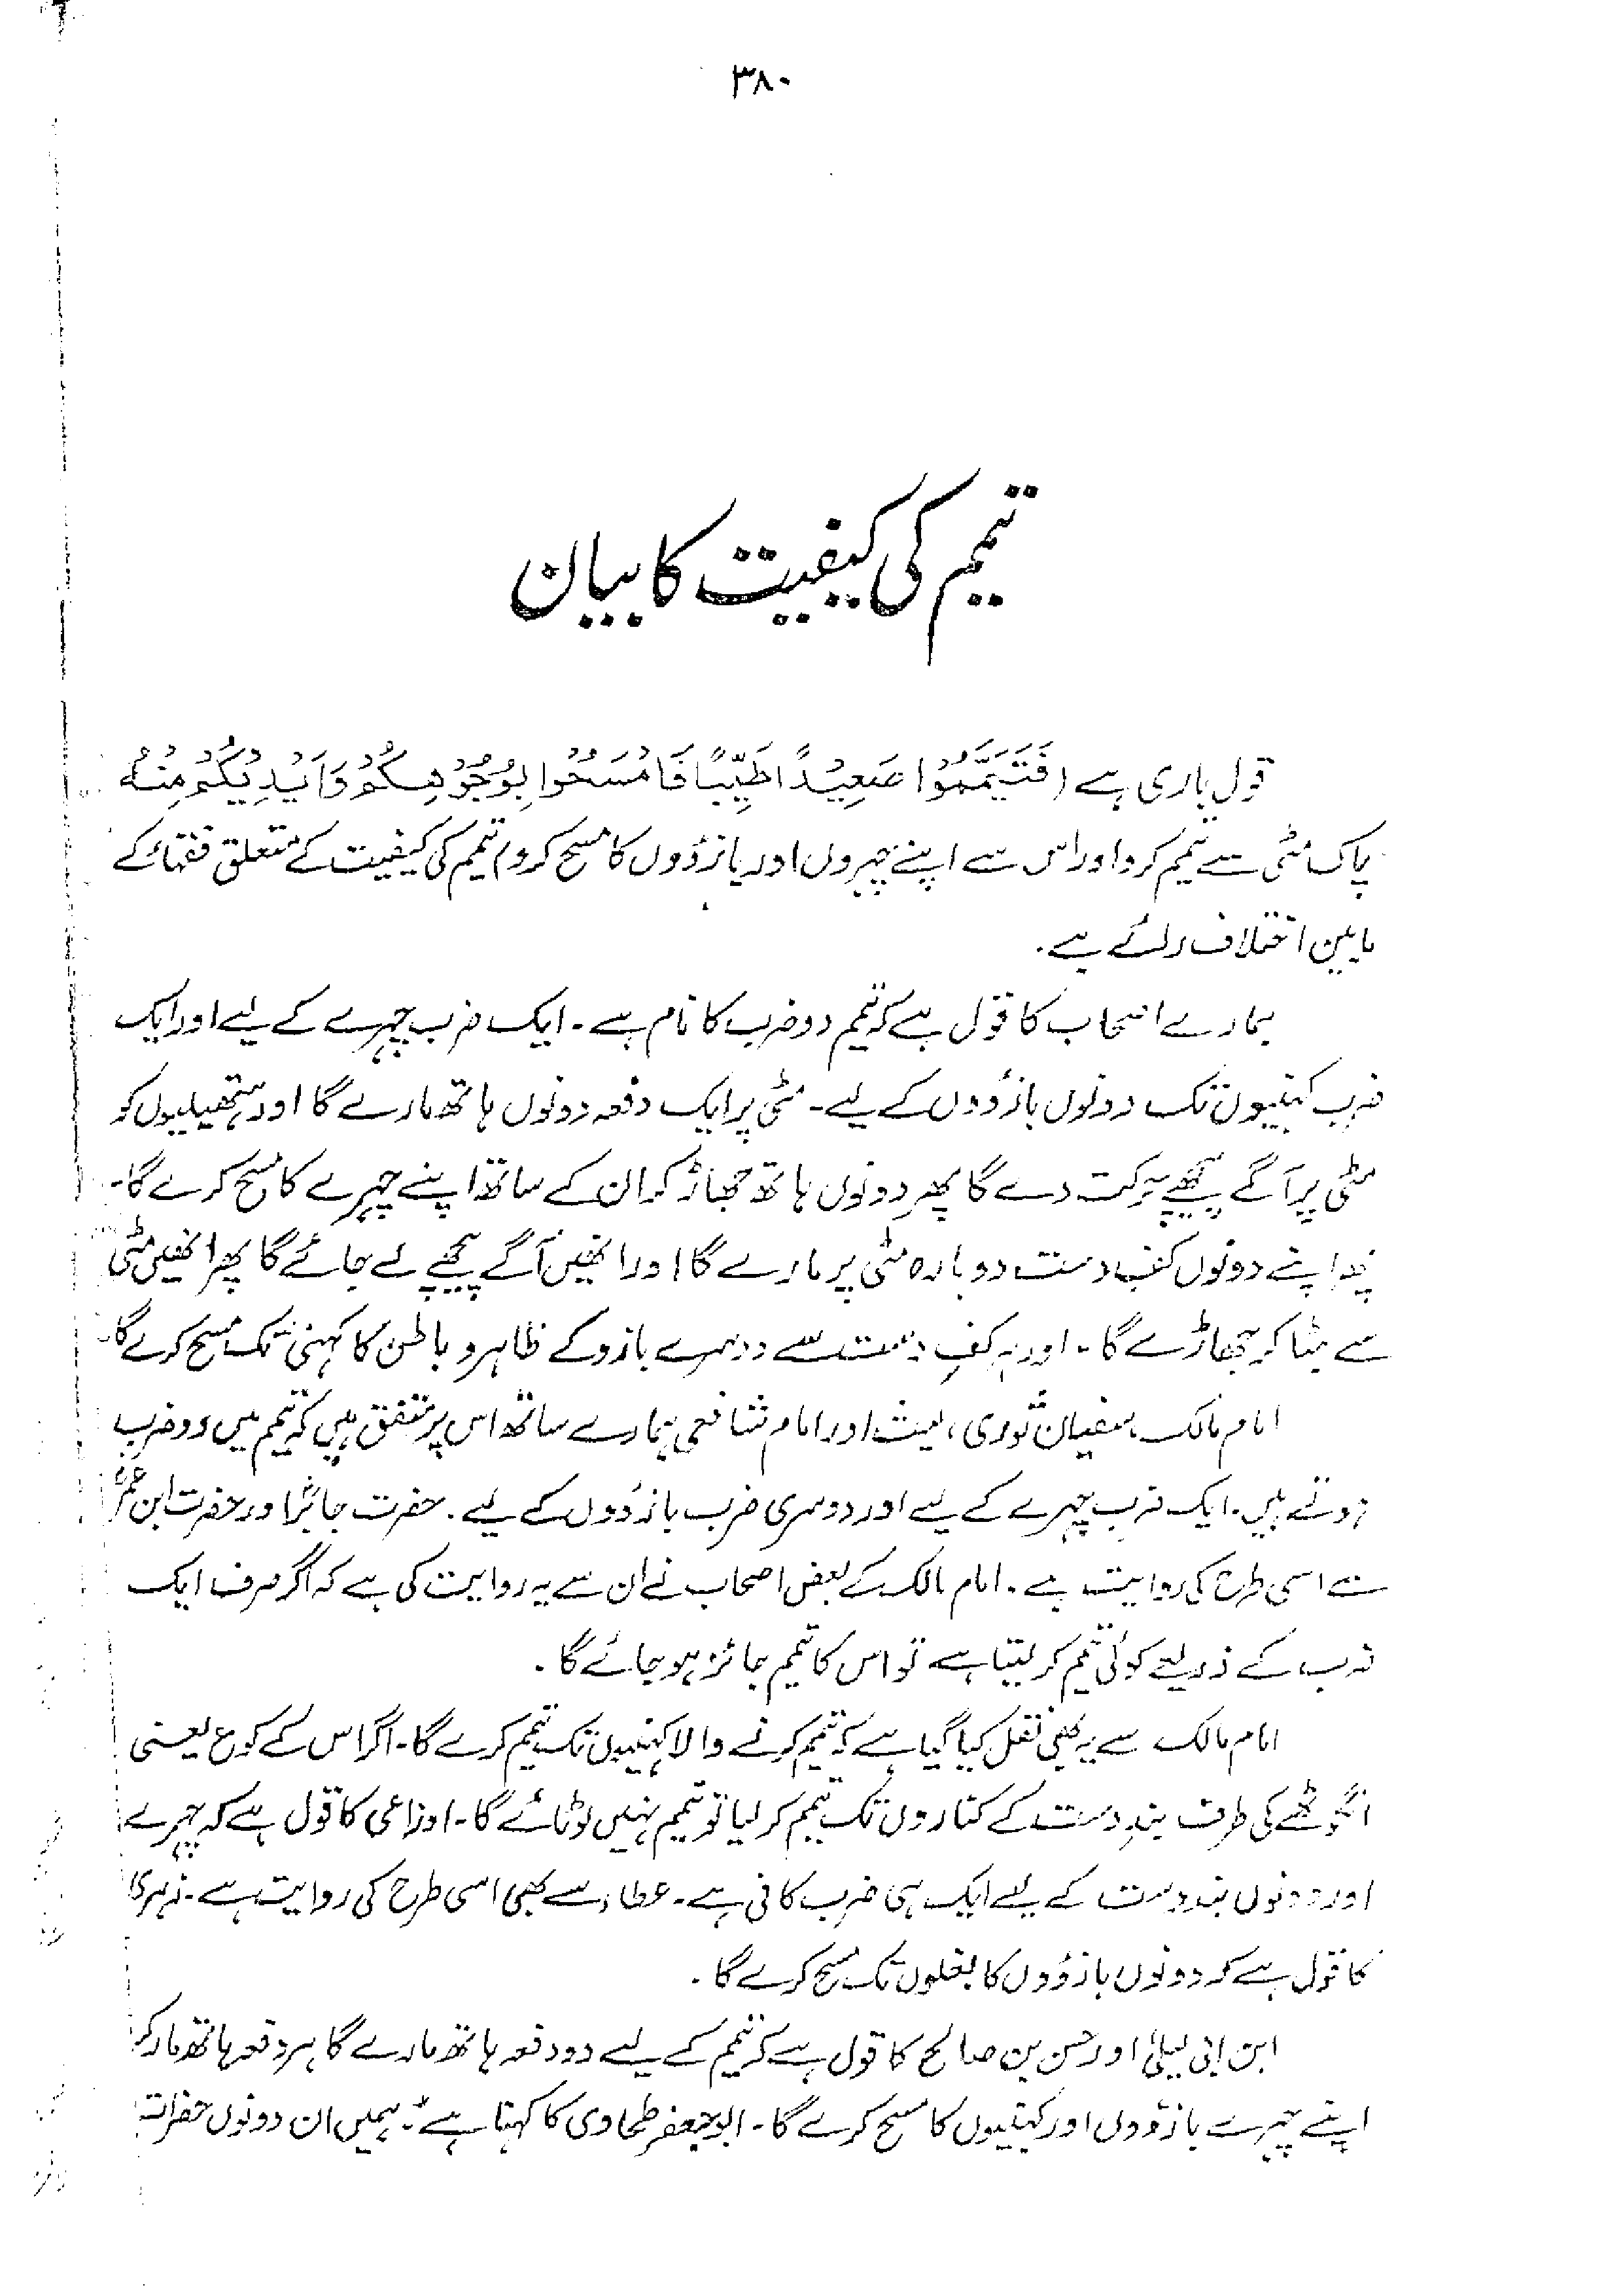 ۳۸۰
تیمم کی کیفیت کا بیان
قول باری ہے (فَتَيَمَّمُوْا صَعِيْدًا طَيِّبًا فَامْسَحُوْا بِوُجُوْهِكُمْ وَاَيْدِيْكُمْ مِنْهُ
پاک مٹی سے تیمم کرو اور اس سے اپنے چہروں اور بازؤوں کا مسح کرو) تیمم کی کیفیت کے متعلق فقہاء کے
مابین اختلاف رائے ہے۔
ہمارے اصحاب کا قول ہے کہ تیمم دو ضرب کا نام ہے۔ ایک ضرب چہرے کے لیے اور ایک
ضرب کہنیوں تک دونوں بازؤوں کے لیے۔ مٹی پر ایک دفعہ دونوں ہاتھ مارے گا اور ہتھیلیوں کو
مٹی پر آگے پیچھے حرکت دے گا پھر دونوں ہاتھ جھاڑ کر ان کے ساتھ اپنے چہرے کا مسح کرے گا۔
پھر اپنے دونوں کف دست دوبارہ مٹی پر مارے گا اور انھیں آگے پیچھے لے جائے گا پھر انھیں مٹی
سے ہٹا کر جھاڑے گا۔ اور ہر کفِ دست سے دوسرے بازو کے ظاہر و باطن کا کہنی تک مسح کرے گا۔
امام مالک، سفیان ثوری، لیث اور امام شافعی ہمارے ساتھ اس پر متفق ہیں کہ تیمم میں دو ضرب
ہوتے ہیں۔ ایک ضرب چہرے کے لیے اور دوسری ضرب بازؤوں کے لیے۔ حضرت جابرؓ اور حضرت ابن عمرؓ
سے اسی طرح کی روایت ہے۔ امام مالک کے بعض اصحاب نے ان سے یہ روایت کی ہے کہ اگر صرف ایک
ضرب کے ذریعے کوئی تیمم کر لیتا ہے تو اس کا تیمم جائز ہو جائے گا۔
امام مالک سے یہ بھی نقل کیا گیا ہے کہ تیمم کرنے والا کہنیوں تک تیمم کرے گا۔ اگر اس کے کوع یعنی
انگوٹھے کی طرف بندِ دست کے کناروں تک تیمم کر لیا تو تیمم نہیں لوٹائے گا۔ اوزاعی کا قول ہے کہ چہرے
اور دونوں بند دست کے لیے ایک ہی ضرب کافی ہے۔ عطاء سے بھی اسی طرح کی روایت ہے۔ زہری
کا قول ہے کہ دونوں بازؤوں کا بغلوں تک مسح کرے گا۔
ابن ابی لیلیٰ اور حسن بن صالح کا قول ہے کہ تیمم کے لیے دو دفعہ ہاتھ مارے گا ہر دفعہ ہاتھ مار کر
اپنے چہرے بازؤوں اور کہنیوں کا مسح کرے گا۔ ابوجعفر طحاوی کا کہنا ہے "ہمیں ان دونوں حضرات